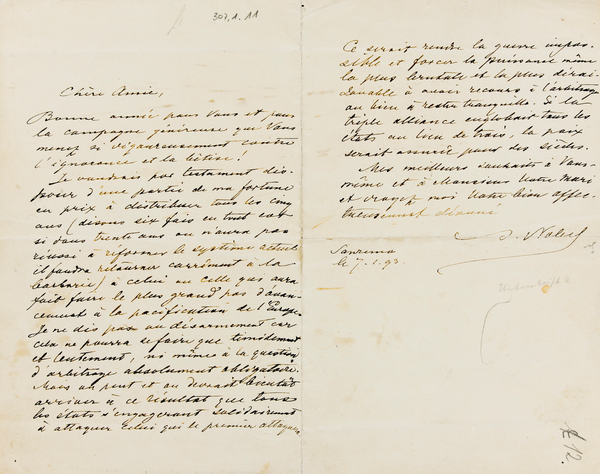 307, 1. 11
Chère Amie,
Bonne année pour Vous et pour
la campagne généreuse que Vous
menez si vigoureusement contre
l'ignorance et la bêtise!
Je voudrais par testament dis-
poser d'une partie de ma fortune
en prix à distribuer tous les cinq
ans (disons six fois en tout car
si dans trente ans on n'aura pas
réussi à réformer le système actuel
il faudra retourner carrément à la
barbarie) à celui ou celle qui aura
fait faire le plus grand pas d'avan-
cement à la pacification de l'Europe.
Je ne dis pas au désarmement car
cela ne pourra se faire que timidement
et lentement, ni même à la question
d'arbitrage absolument obligatoire.
Mais on peut et on devrait bientôt
arriver à ce résultat que tous
les états s'engageront solidairement
à attaquer celui qui le premier attaquera
Ce serait rendre la guerre impos-
sible et forcer la puissance même
la plus brutale et la plus dérai-
sonable à avoir recours à l'arbitrage
ou bien à rester tranquille. Si la
triple alliance englobait tous les
états au lieu de trois, la paix
serait assurée pour des siècles.
Mes meilleurs souhaits à Vous-
même et à Monsieur Votre Mari
et croyez moi Votre bien affec-
tueusement dévoué
A. Nobel
Sanremo
le 7.1.93.